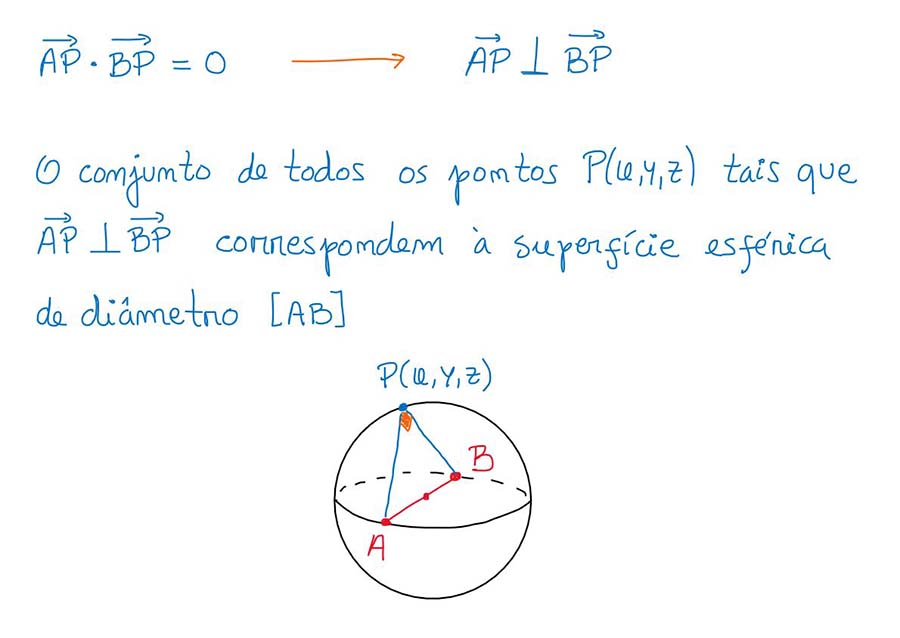 $\overrightarrow{AP} \cdot \overrightarrow{BP} = 0$ ⟶ $\overrightarrow{AP} \perp \overrightarrow{BP}$
O conjunto de todos os pontos P(x,y,z) tais que
$\overrightarrow{AP} \perp \overrightarrow{BP}$ correspondem à superfície esférica
de diâmetro [AB]
P(x,y,z)
B
A